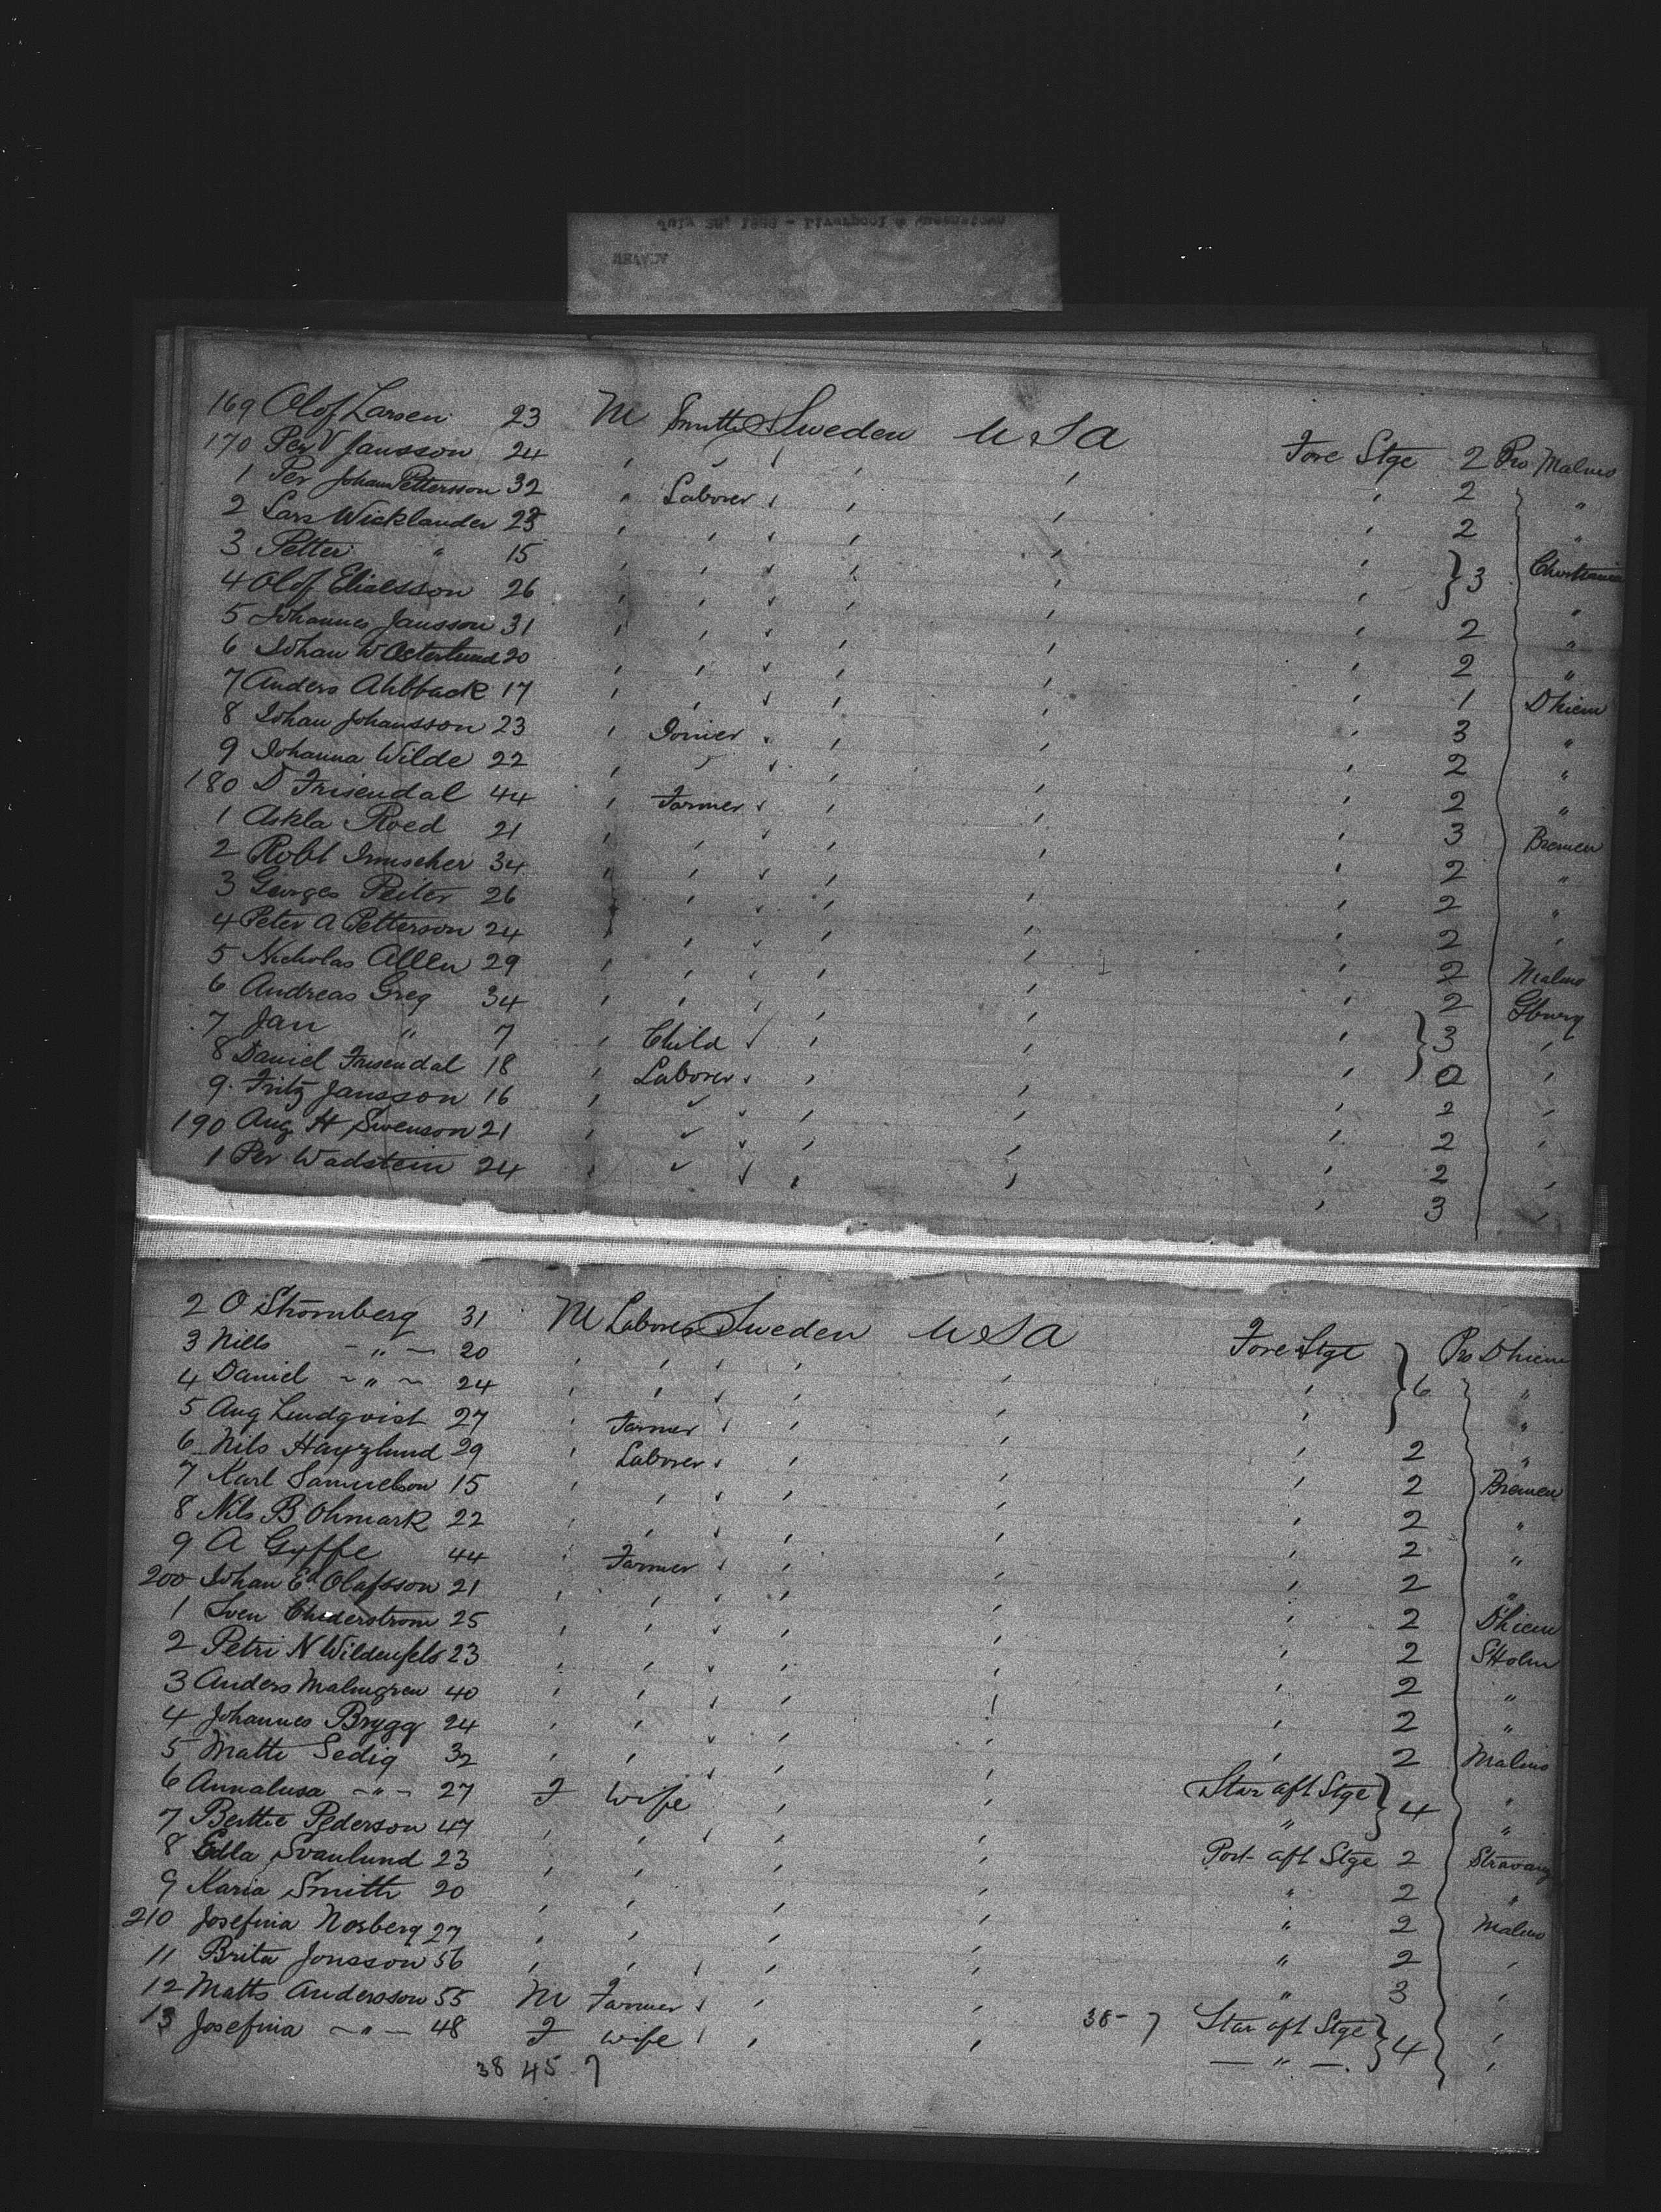 169 Olof Larsen 23 M Smith Sweden U S A Fore Stge 2 Pro Malmo
170 Per V Jansson 24 " " " " " 2 "
1 Per Johan Pettersson 32 " Laborer " " " 2 "
2 Lars Wicklander 25 " " " " " } 3
3 Petter " 15 " " " " " "
4 Olof Eliasson 26 " " " " " 2 "
5 Johannes Jansson 31 " " " " " 2 "
6 Johan W Osterlund 20 " " " " " 1 Dhiem
7 Anders Ahlback 17 " " " " " 3 "
8 Johan Johansson 23 " Joiner " " " 2 "
9 Johanna Wilde 22 " " " " " 2 "
180 D Frisendal 44 " Farmer " " " 3 Bremen
1 Roed 21 " " " " " 2 "
2 Robt Irmscher 34 " " " " " 2 "
3 Georges Peiter 26 " " " " " 2 "
4 Peter A Petterson 24 " " " " " 2 Malmo
5 Nicholas Allen 29 " " " " " 2 Gburg
6 Andreas Greg 34 " " " " " } 3 "
7 Jan " 7 " Child " " " "
8 Daniel Frisendal 18 " Laborer " " " 2 "
9 Fritz Jansson 16 " " " " " 2 "
190 Aug H Swenson 21 " " " " " 2 "
1 Per Wadstein 24 " " " " " 3 "
2 O Strömberg 31 M Laborer Sweden U S A Fore Stge Pro Dhiem
3 Nills - " - 20 " " " " " } 6 "
4 Daniel - " - 24 " " " " " "
5 Aug Lindqvist 27 " Farmer " " " 2 "
6 Nils 29 " Laborer " " " 2 Bremen
7 Karl Samuelson 15 " " " " " 2 "
8 Nils B Ohmark 22 " " " " " 2 "
9 A Gyffe 44 " Farmer " " " 2 "
200 Johan Ed Olafsson 21 " " " " " 2 Dhiem
1 Sven 25 " " " " " 2 SHolm
2 Petri N Wildenfels 23 " " " " " 2 "
3 Anders Malmgren 40 " " " " " 2 "
4 Johannes Brygg 24 " " " " " 2 Malmo
5 Matti Sedig 32 " " " " Star aft Stge } 4 "
6 Annalusa - " - 27 F Wife " " " "
7 Berttie Pederson 47 " " " " Port aft Stge 2
8 Edla Svanlund 23 " " " " " 2 "
9 Maria Smith 20 " " " " " 2 Malmo
210 Josefina Norberg 27 " " " " " 2 "
11 Brita Jonsson 56 " " " " " 3 "
12 Matts Andersson 55 M Farmer " " " 38 - 7 Star aft Stge } 4 "
13 Josefina - " - 48 F Wife " " " - " - "
38 45 7